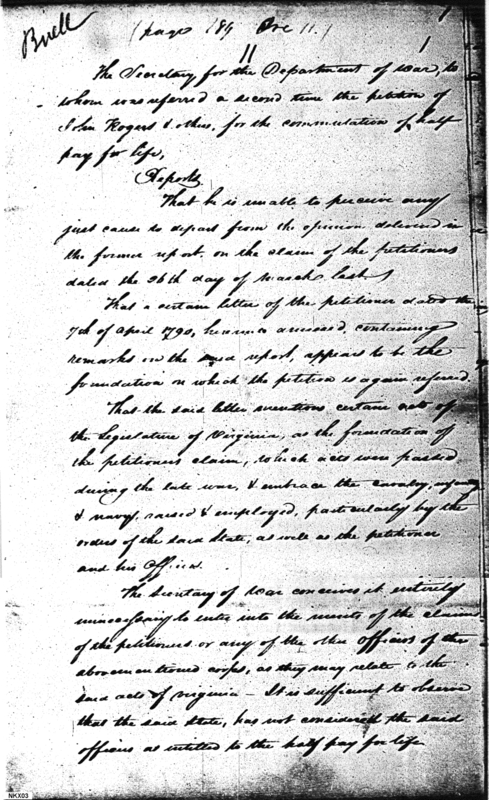 Buell
(page 189 Dec 11.)
11
The Secretary for the Department of war, to
whom was referred a second time the petition of
John Rogers & others, for the commutation of half
pay for life,
Reports
That he is unable to perceive any
just cause to depart from the opinion delivered in
the former report, on the claim of the petitioners
dated the 26th day of March last
That a certain letter of the petitioner dated the
7th of April 1790, hereunto annexed, containing
remarks on the said report, appears to be the
foundation on which the petition is again refered.
That the said letter mentions certain acts of
the Legislature of Virginia, as the foundation of
the petitioners claim, which acts were passed
during the late war, & embrace the Cavalry, infantry
& navy, raised & employed, particularly by the
orders of the said State, as well as the petitioner
and his Officers.
The Secretary of War conceives it entirely
unnecessary to enter into the merits of the claim
of the petitioners or any of the other officers of the
abovementioned corps, as they may relate to the
said acts of Virginia – It is sufficient to observe
that the said State, has not considered the said
officers as intitled to the half pay for life
NKX03